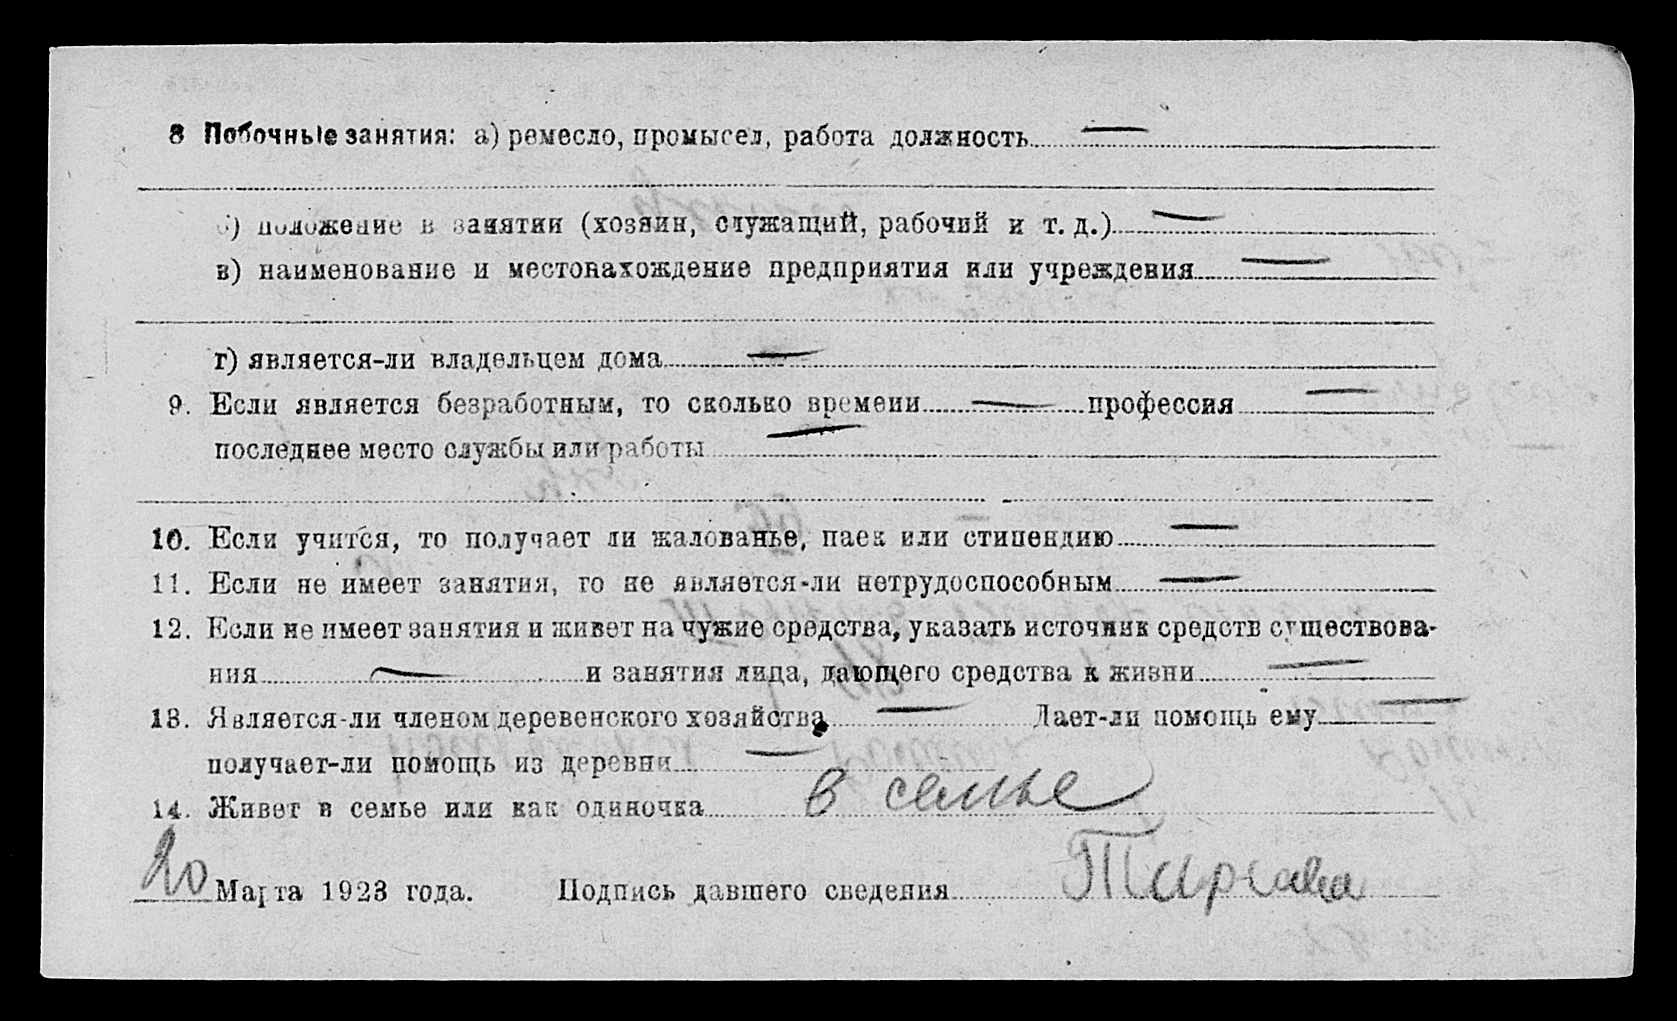 8 Побочные занятия: а) ремесло, промысел, работа должность —
б) положение в занятии (хозяин, служащий, рабочий и т. д.) —
в) наименование и местонахождение предприятия или учреждения —
г) является-ли владельцем дома —
9. Если является безработным, то сколько времени — профессия —
последнее место службы или работы —
10. Если учится, то получает ли жалованье, паек или стипендию —
11. Если не имеет занятия, то не является-ли нетрудоспособным —
12. Если не имеет занятия и живет на чужие средства, указать источник средств существова-
ния — и занятия лица, дающего средства к жизни —
13. Является-ли членом деревенского хозяйства — Дает-ли помощь ему —
получает-ли помощь из деревни —
14. Живет в семье или как одиночка в семье
20 Марта 1923 года. Подпись давшего сведения